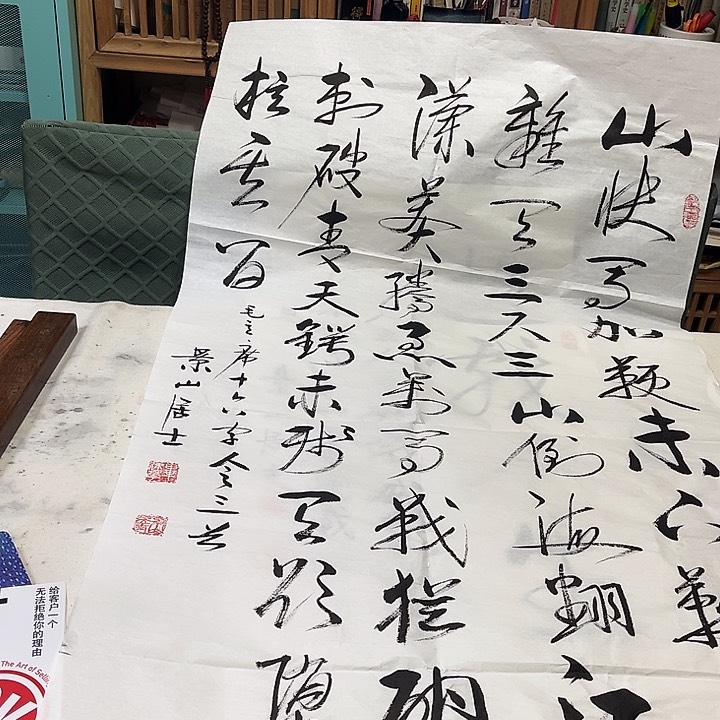 山快马加鞭未下鞍
離天三尺三山倒海翻江
瀾奔騰急萬马戰猶酣
刺破青天鍔未残天欲堕
拄其间
毛主席十六字令三首
景山居士
给客户一个
无法拒绝你的理由
The Art of